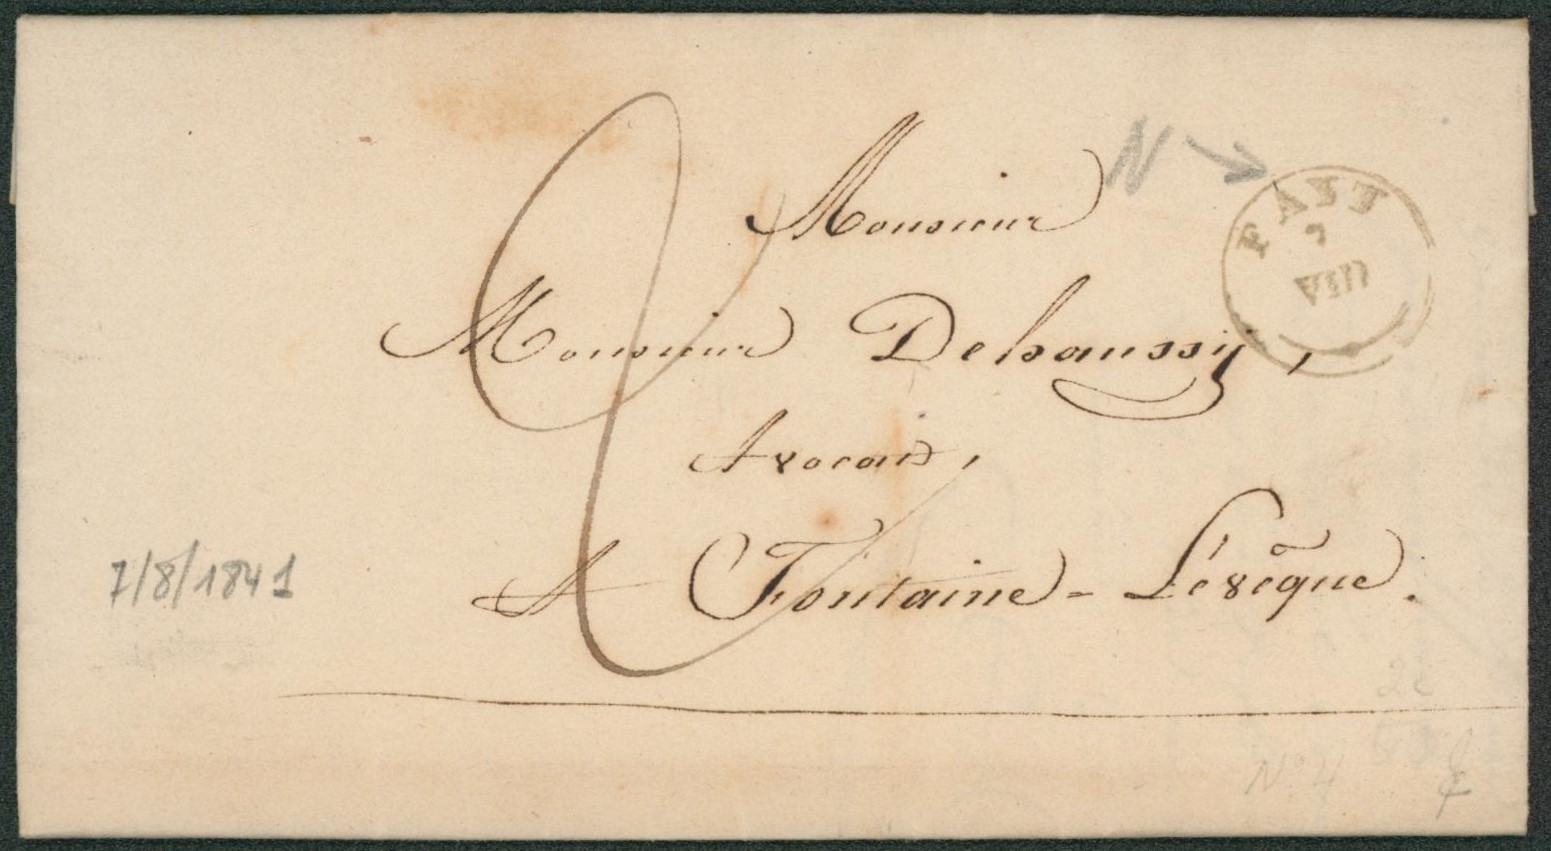 N
FAYT
7
VIII
Monsieur
Monsieur Dehaussy,
Avocat,
A Fontaine-Lévêque.
7/8/1841
N° 4